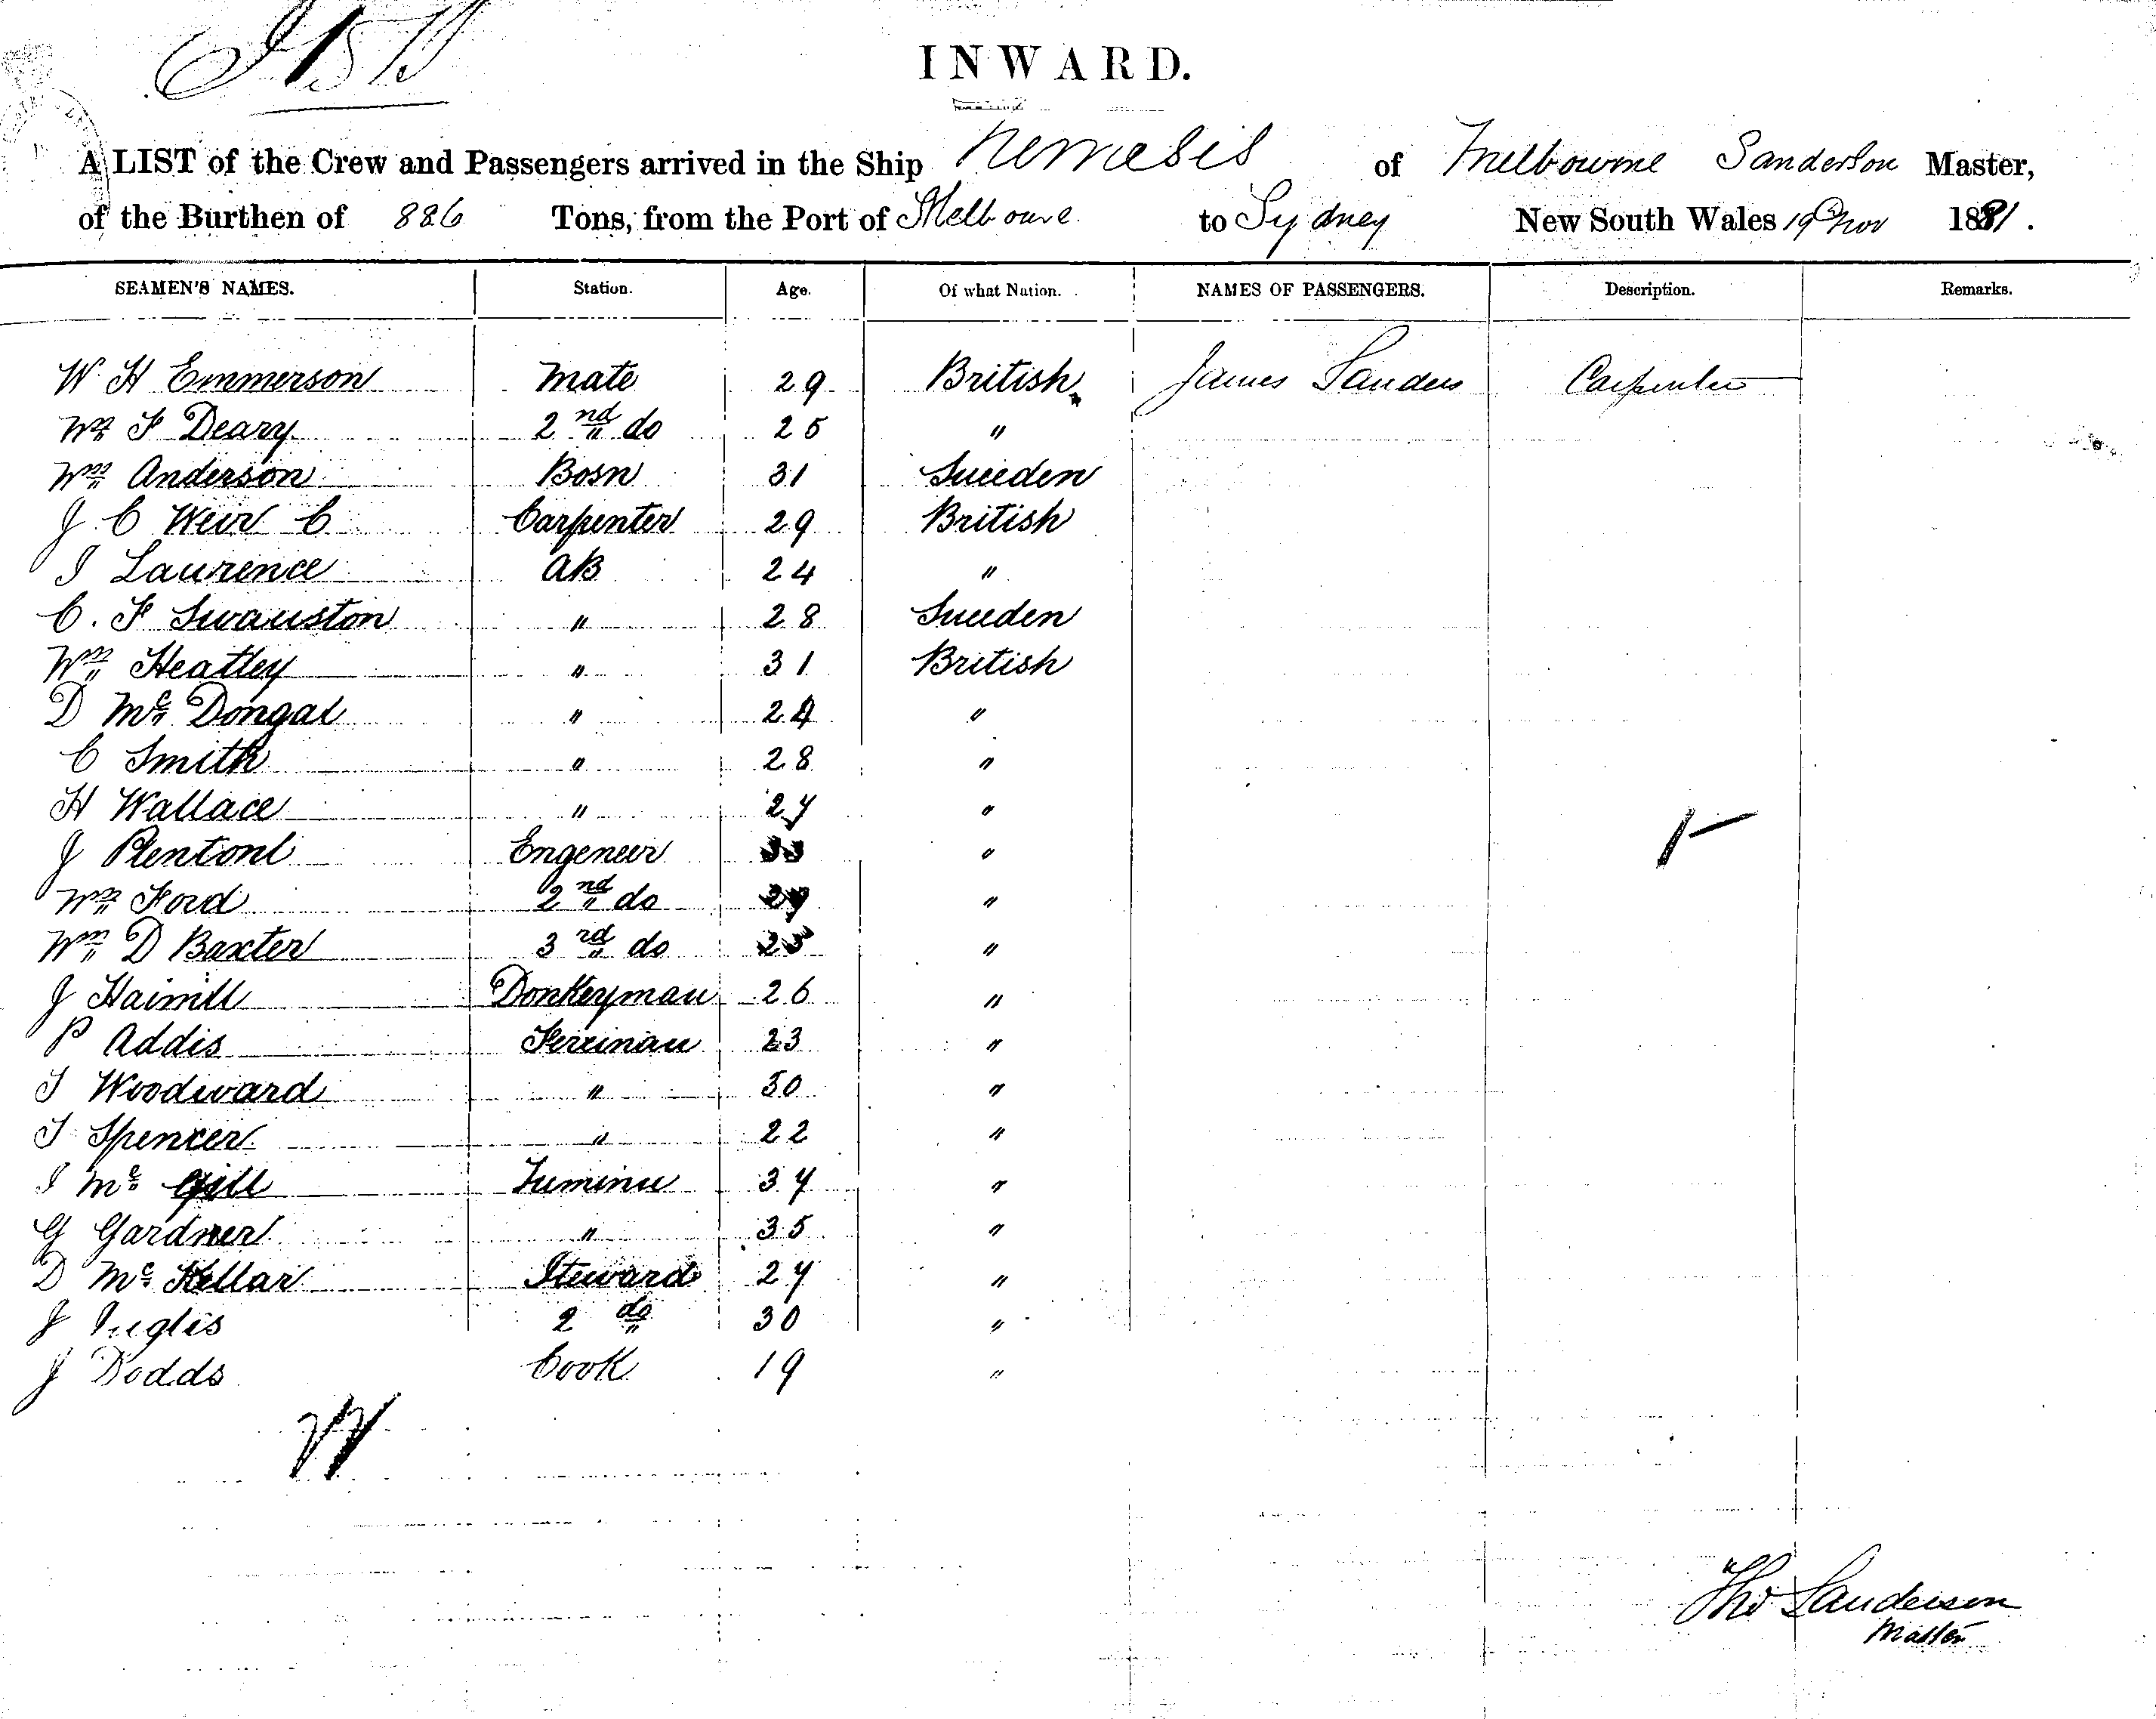 INWARD.
A LIST of the Crew and Passengers arrived in the Ship Nemesis of Melbourne Sanderson Master,
of the Burthen of 886 Tons, from the Port of Melbourne to Sydney New South Wales 19 Nov 1881.
SEAMEN'S NAMES. Station. Age. Of what Nation. NAMES OF PASSENGERS. Description. Remarks.
W H Emmerson Mate 29 British James Sanders Carpenter
Wm F Deary 2nd do 25 "
Wm Anderson Bosn 31 Sweeden
J C Weir C Carpenter 29 British
J Laurence AB 24 "
C. F Swanston " 28 Sweden
Wm Heatley " 31 British
D Mc Dongal " 24 "
C Smith " 28 "
H Wallace " 27 "
J Engeneer 33 "
Wm Ford 2nd do 29 "
Wm D Baxter 3rd do 25 "
J Donkeyman 26 "
P Addis 23 "
T Woodward " 30 "
T Spencer " 22 "
J Mc Gill 37 "
G Gardner " 35 "
D Mc Kellar Steward 27 "
J Inglis 2 do 30 "
J Dodds Cook 19 "
Tho Sanderson
Master